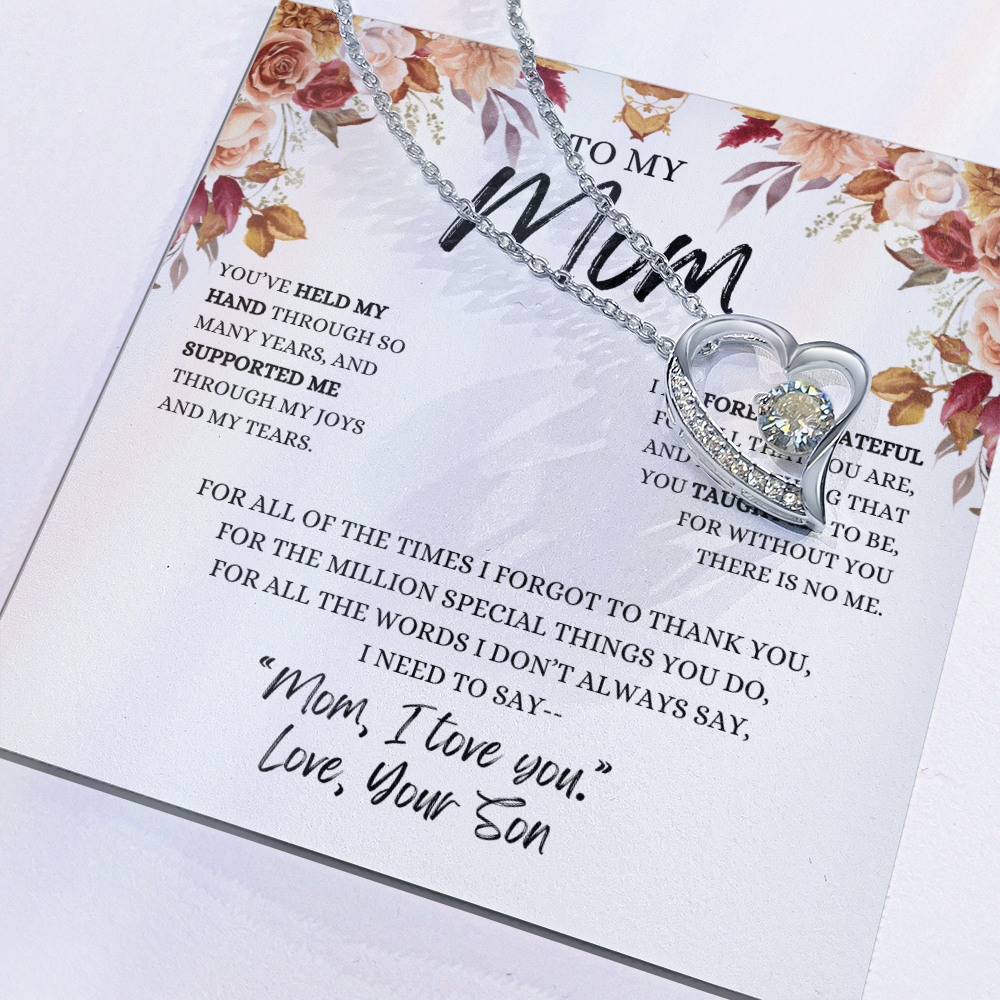 TO MY
Mom
YOU'VE HELD MY
HAND THROUGH SO
MANY YEARS, AND
SUPPORTED ME
THROUGH MY JOYS
AND MY TEARS.
I
FOR ALL THAT YOU ARE,
AND THAT
YOU TO BE,
FOR WITHOUT YOU
THERE IS NO ME.
FOR ALL OF THE TIMES I FORGOT TO THANK YOU,
FOR THE MILLION SPECIAL THINGS YOU DO,
FOR ALL THE WORDS I DON'T ALWAYS SAY,
I NEED TO SAY--
"Mom, I love you."
Love, Your Son